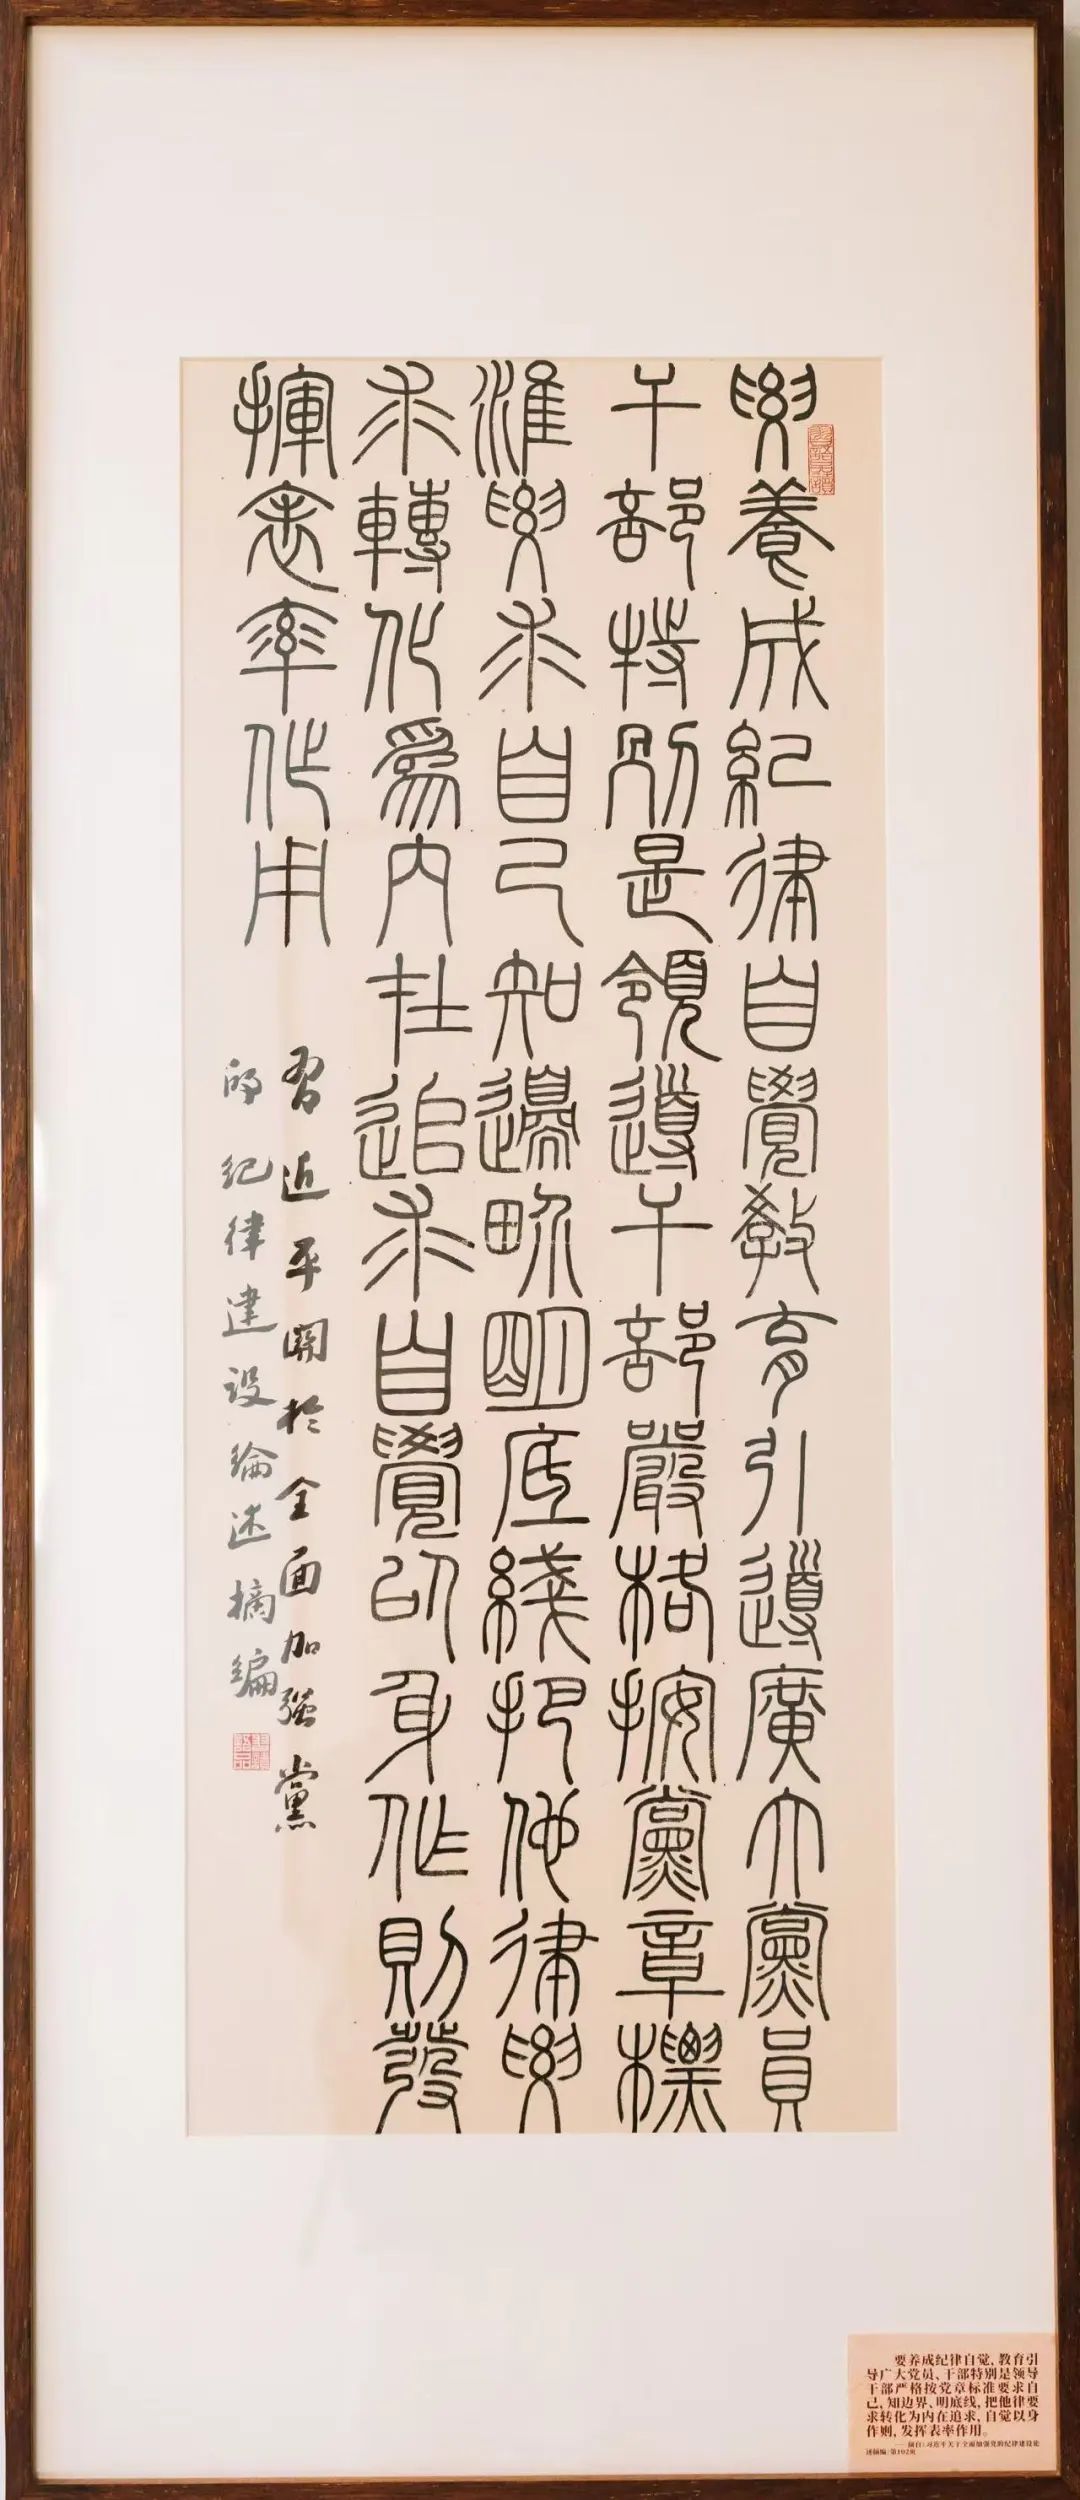 要養成紀律自覺教育引導廣大黨員
干部特別是領導干部嚴格按黨章標
準要求自己知邊界明底綫把他律要
求轉化為內在追求自覺以身作則發
揮表率作用
習近平關於全面加强黨
的紀律建设論述摘编
要养成纪律自觉，教育引
导广大党员、干部特别是领导
干部严格按党章标准要求自
己，知边界、明底线，把他律要
求转化为内在追求，自觉以身
作则，发挥表率作用。
——摘自《习近平关于全面加强党的纪律建设论
述摘编》第102页